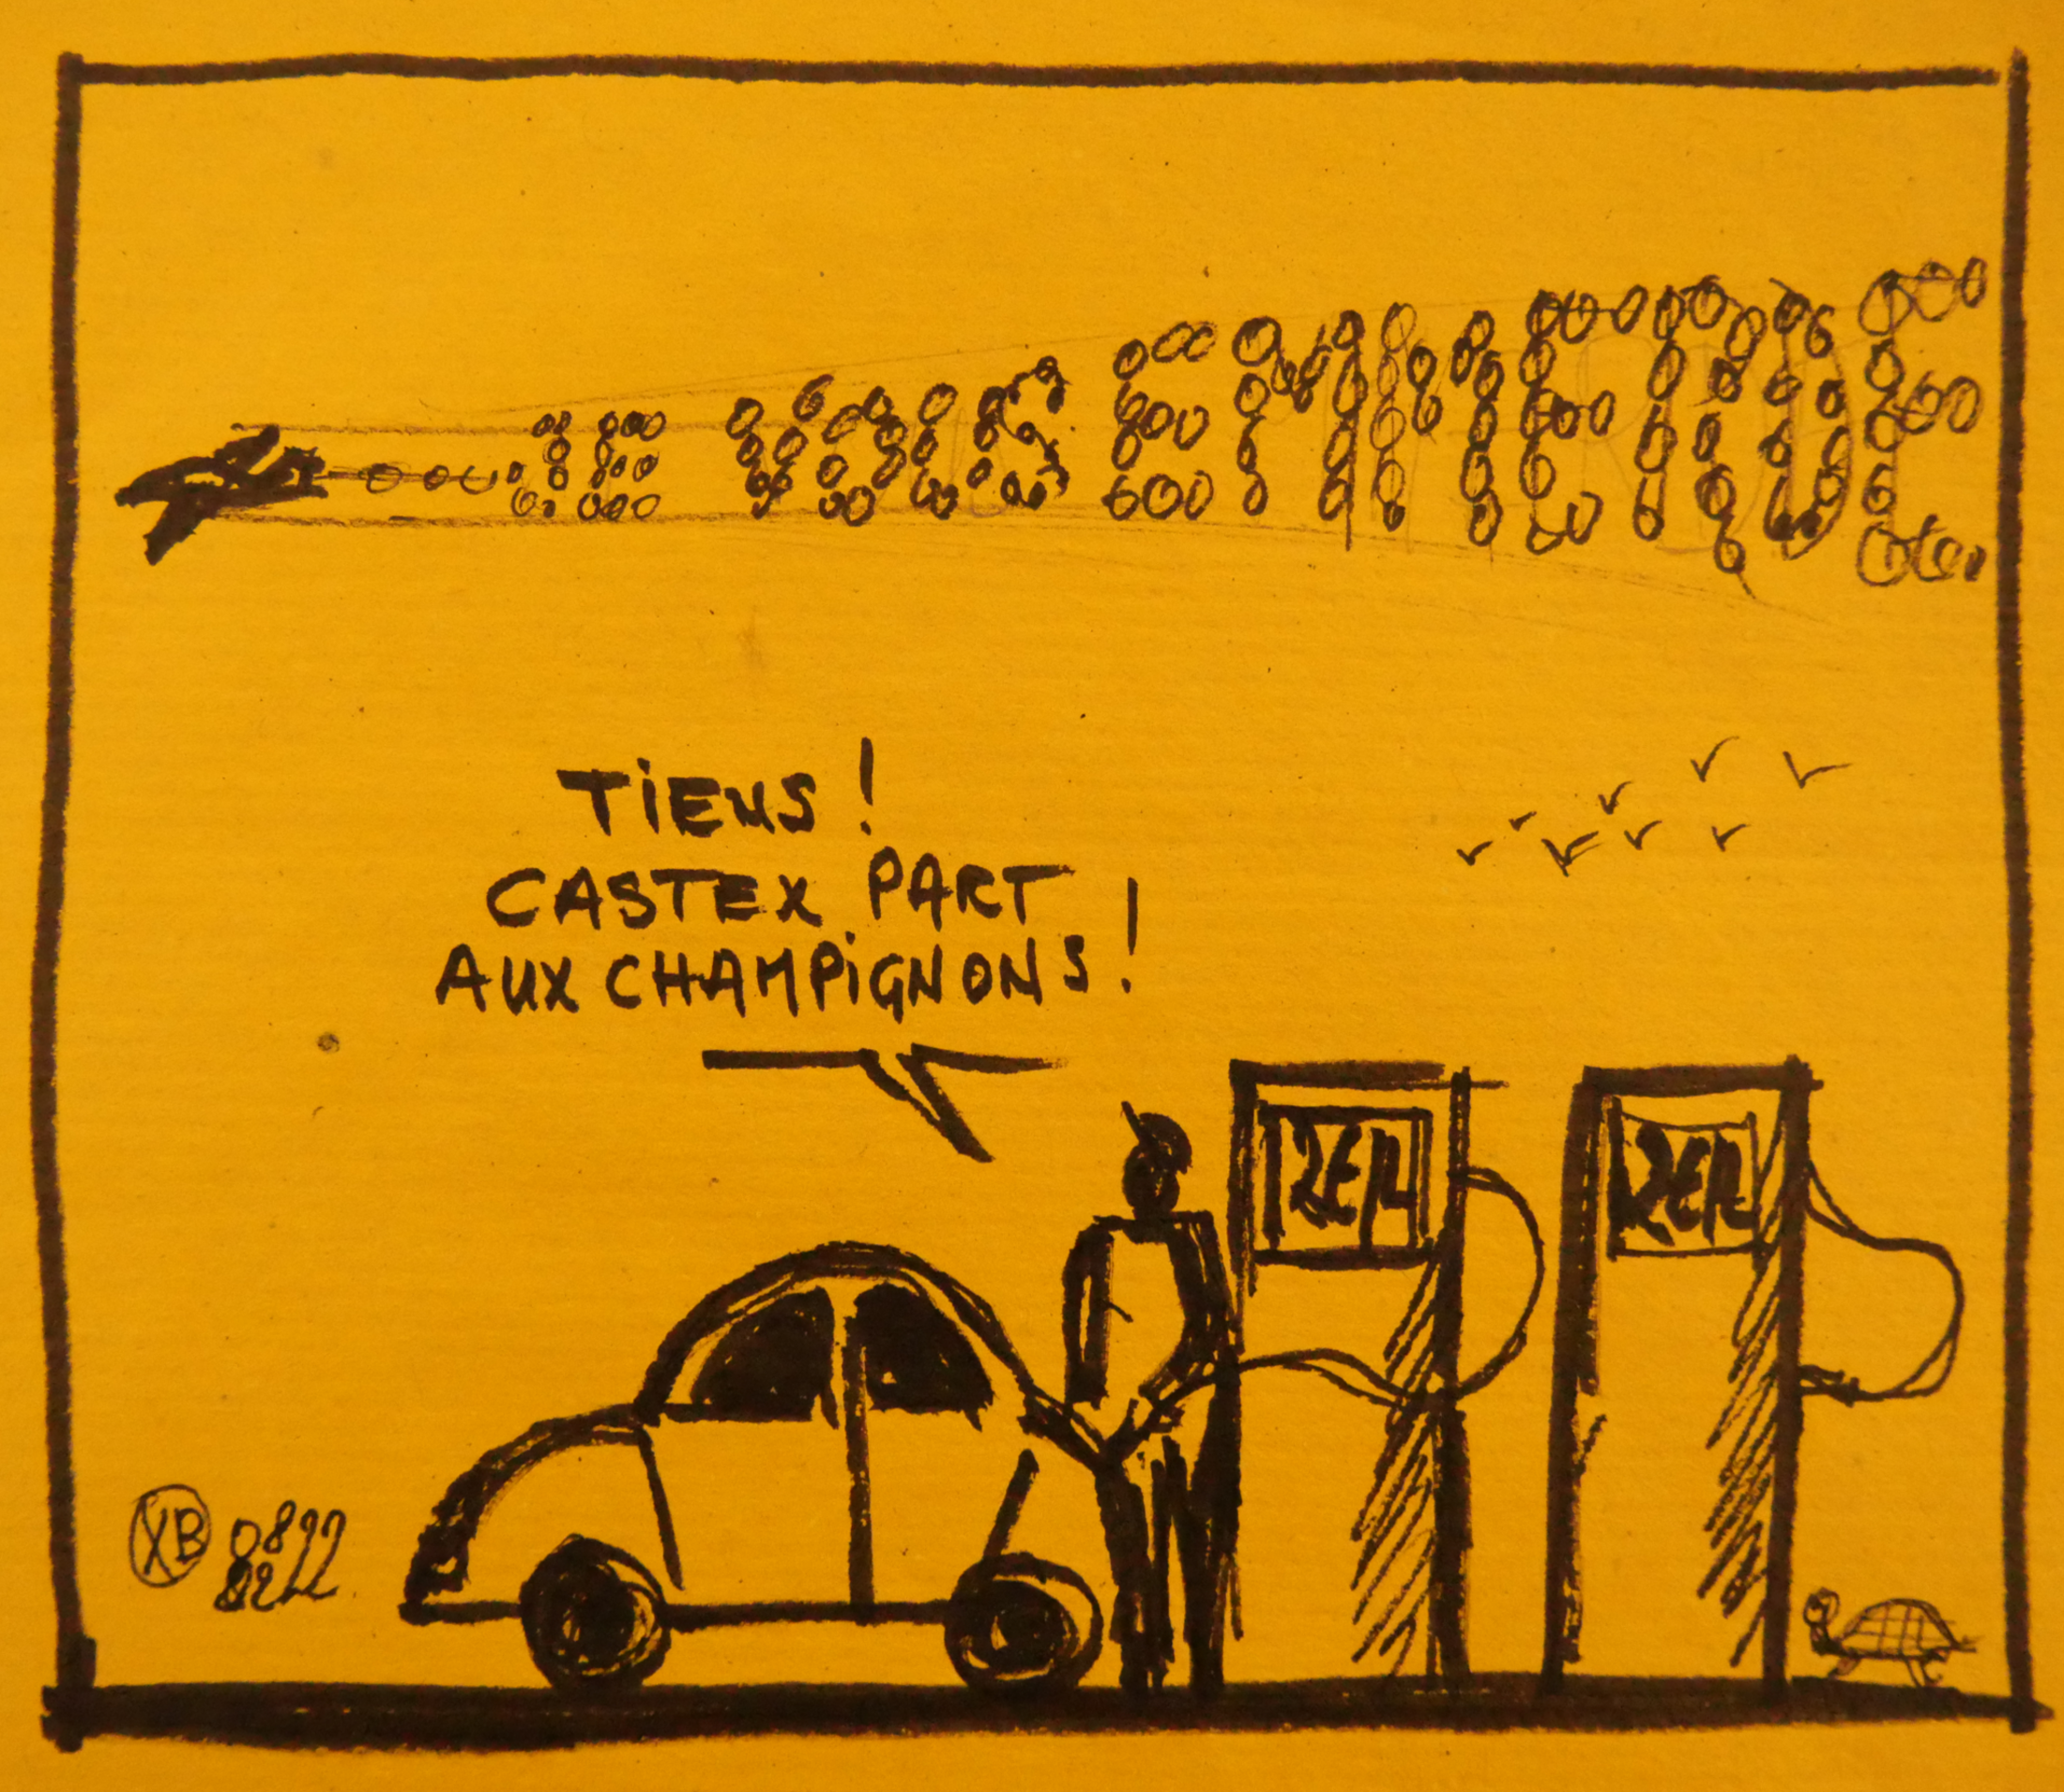 JE VOUS EMMERDE
TiENS !
CASTEX PART
AUX CHAMPiGNONS !
2€/L 2€/L
XB